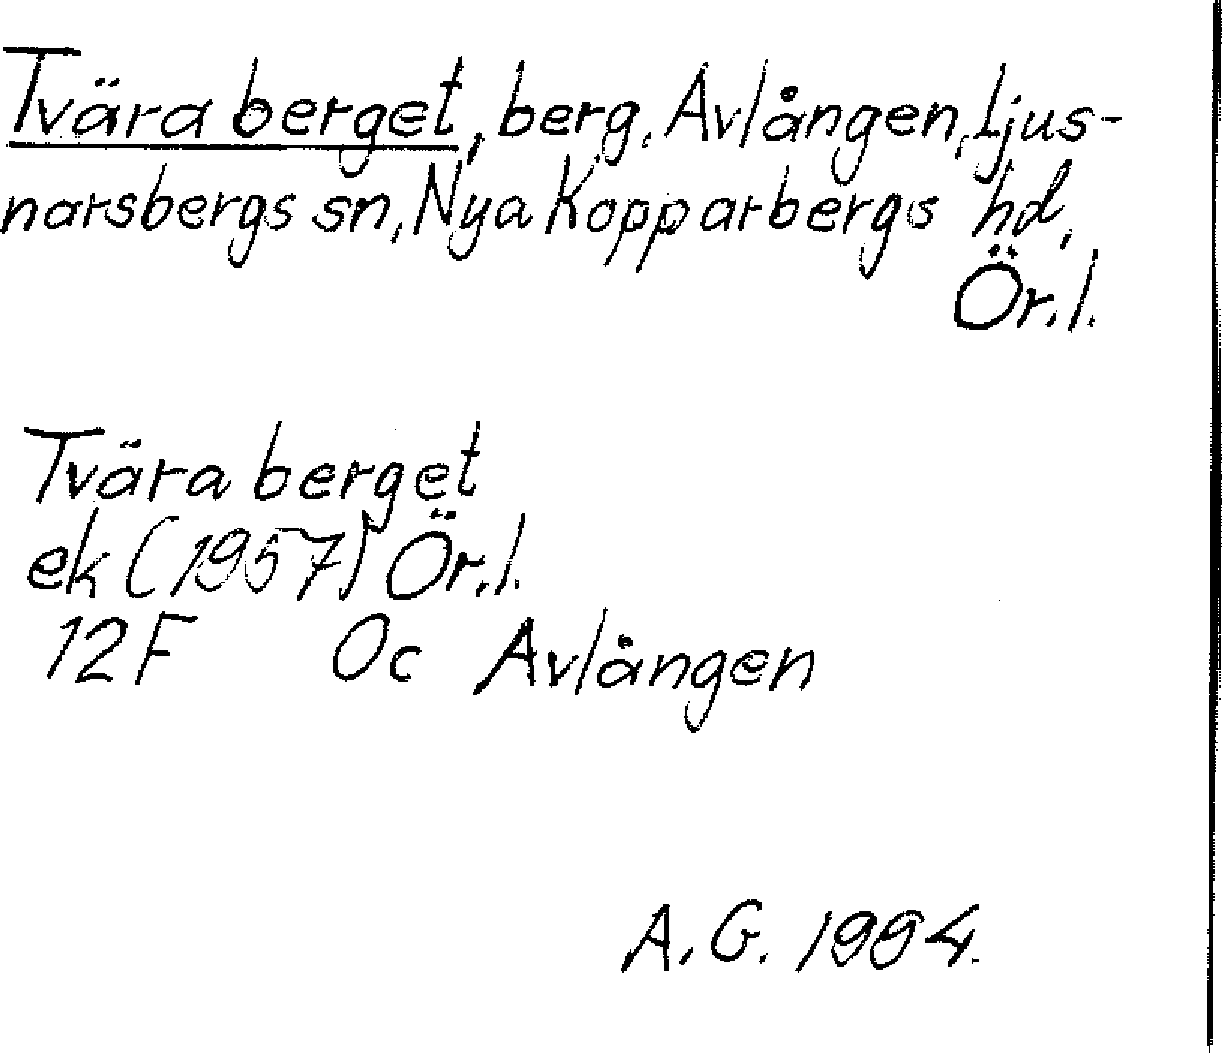 Tvära berget, berg, Avlången, Ljus-
narsbergs sn, Nya Kopparbergs hd,
Ör. l.
Tvära berget
ek (1957) Ör. l.
12F 0c Avlången
A. G. 1994.